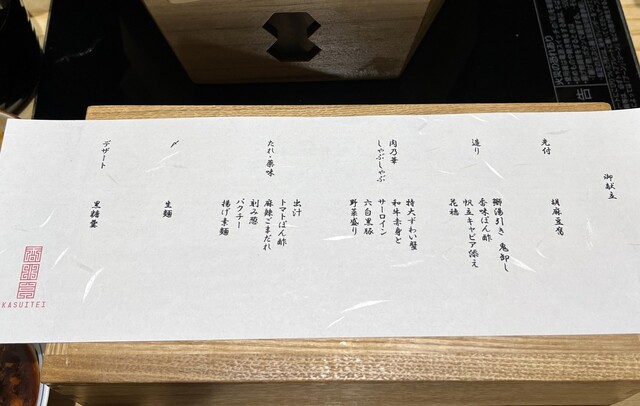 御献立
先付
胡麻豆腐
造り
鰤湯引き 鬼卸し
香味ぽん酢
帆立キャビア添え
花穂
肉乃華
しゃぶしゃぶ
特大ずわい蟹
和牛赤身と
サーロイン
六白黒豚
野菜盛り
たれ・薬味
出汁
トマトぽん酢
麻辣ごまだれ
刻み葱
パクチー
揚げ素麺
〆
生麺
デザート
黒糖羹
KASUITEI